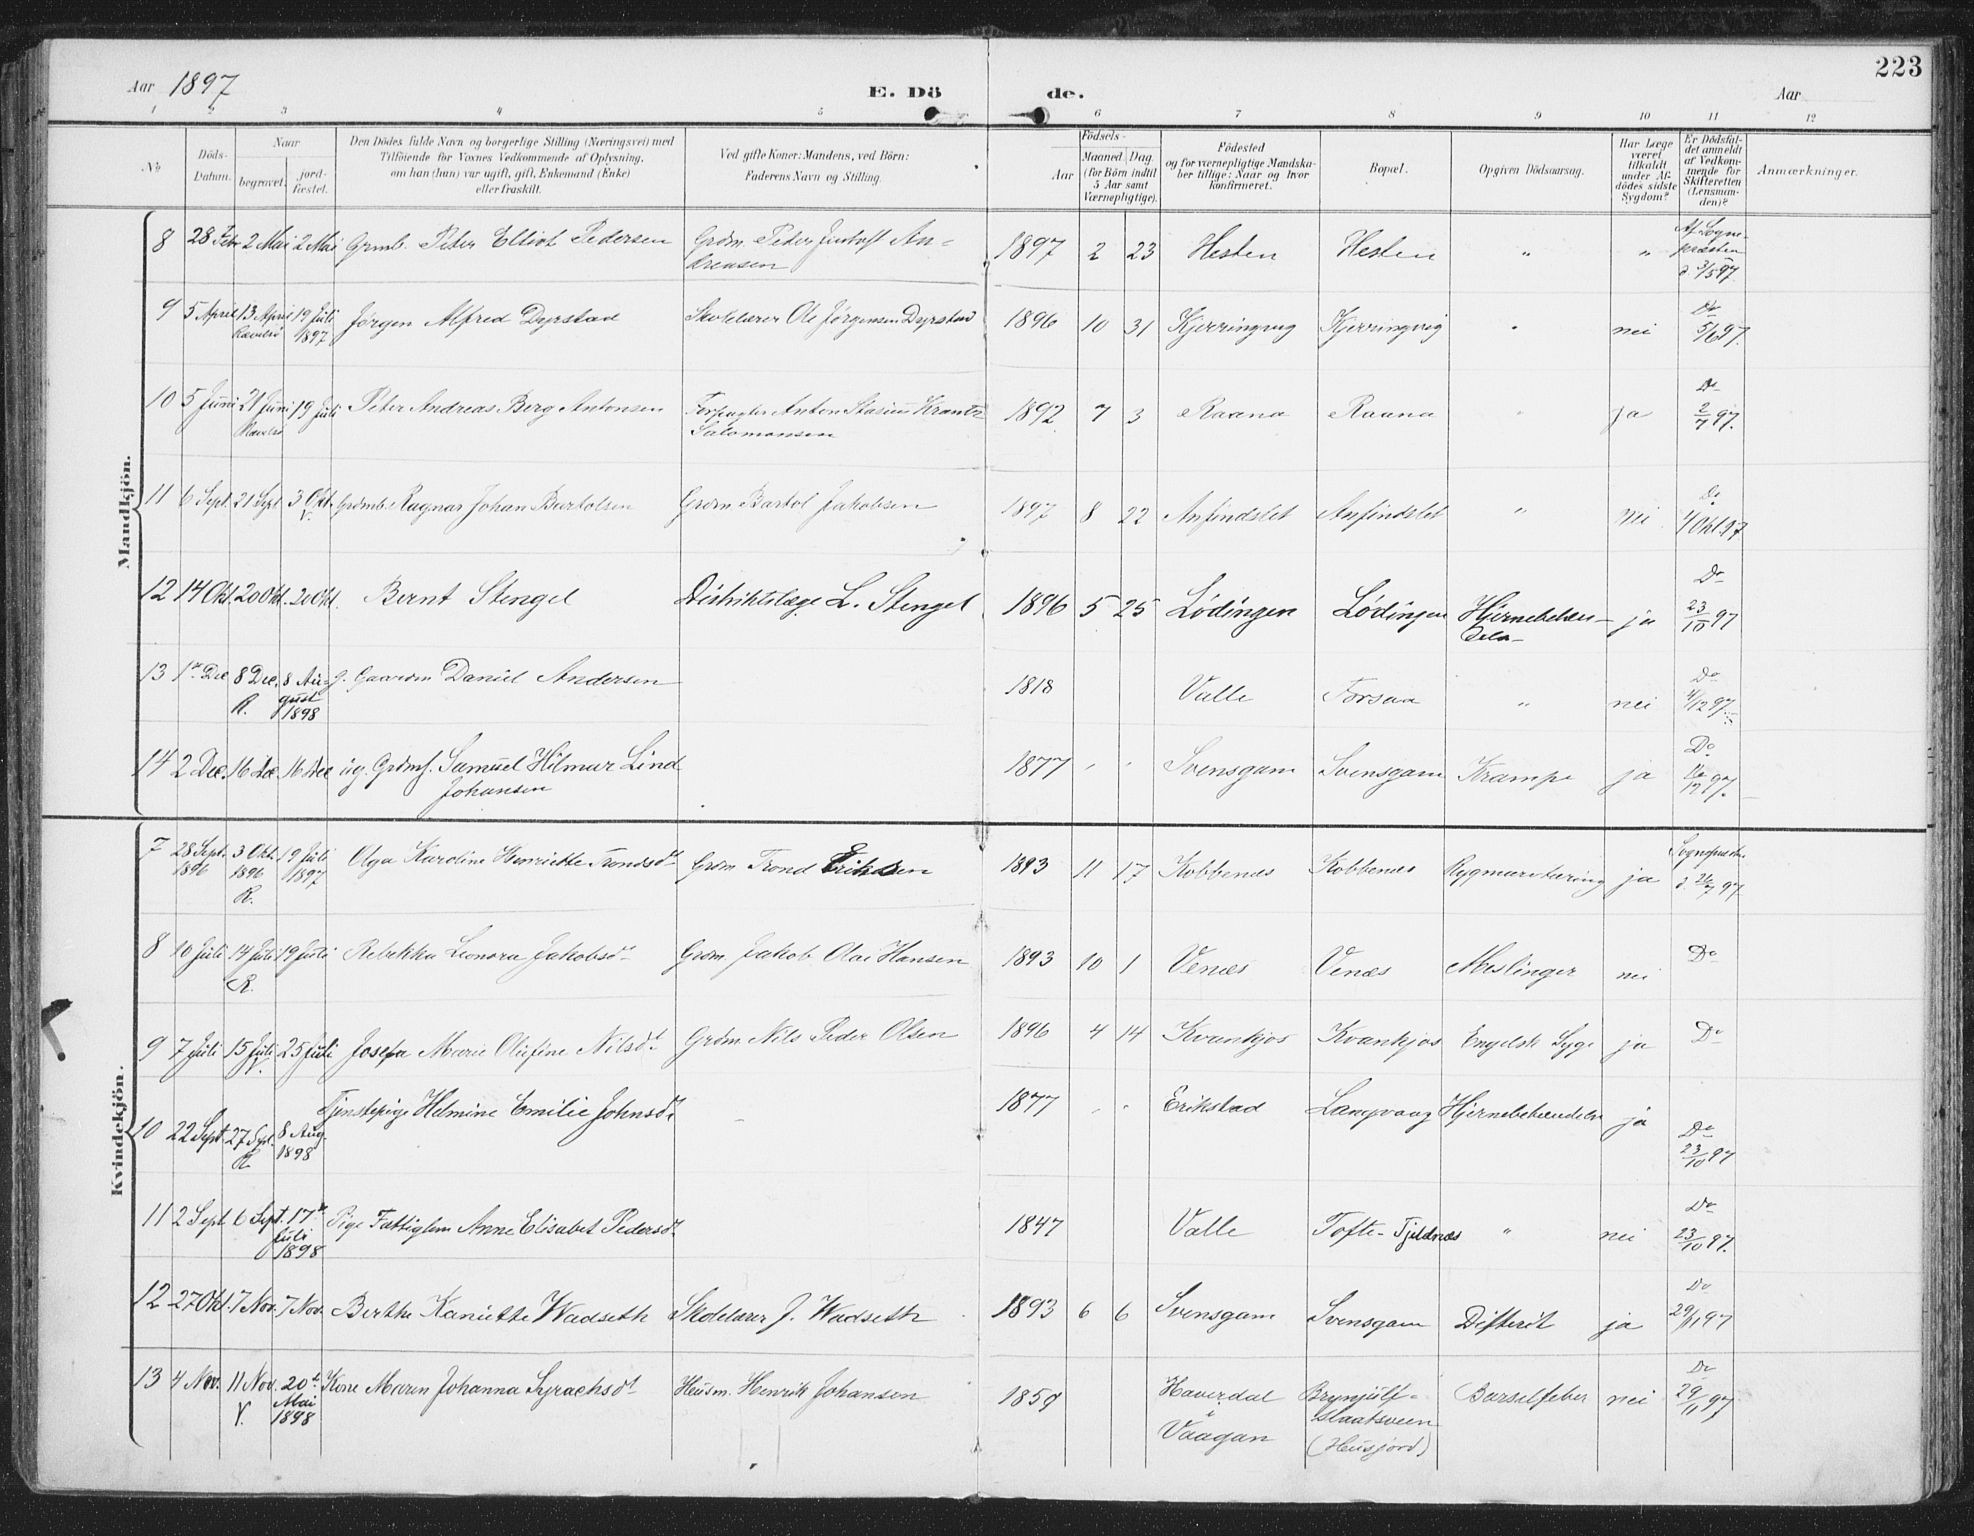 223
Aar 1897
E. Dö de.
Aar
1 2 3 4 5 6 7 8 9 10 11 12
No
Döds-Datum.
Naar
begravet.
jord-fæstet.
Den Dödes fulde Navn og borgerlige Stilling (Næringsvei) med
Tilföiende for Voxnes Vedkommende af Oplysning,
om han (hun) var ugift, gift, Enkemand (Enke)
eller fraskilt.
Ved gifte Koner: Mandens, ved Börn:
Faderens Navn og Stilling.
Födsels-
Aar
Maaned. Dag.
(for Börn indtil
5 Aar samt
Værnepligtige).
Födested
og for værnepligtige Mandska-
ber tillige: Naar og hvor
konfirmeret.
Bopæl.
Opgiven Dödsaarsag.
Har Læge
været
tilkaldt
under Af-
dödes sidste
Sygdom?
Er Dödsfal-
det anmeldt
af Vedkom-
mende for
Skifteretten
(Lensman-
den)?
Anmærkninger.
Mandkjön.
8 28 Febr 2 Mai 2 Mai Grmb. Peter Elliot Pedersen Grdm. Peter Gustaft An-dreasen 1897 2 23 Hesten Hesten " " Af Sogne-præsten d. 3/5 97.
9 5 April 13 April 19 Juli 1897 Jørgen Alfred Dyrstad Skolelærer Ole Jørgensen Dyrstad 1896 10 31 Kjerringvig Kjerringvig " nei Do 5/6 97.
10 5 Juni 21 Juni 19 Juli Peter Andreas Berg Antonsen Forpagter Anton Stasius Krantz Salomonsen 1892 7 3 Raana Raana " ja Do 2/7 97.
11 6 Sept. 21 Sept 3 Okt. V. Grdmb. Ragnar Johan Bartolsen Grdm Bartol Jakobsen 1897 8 22 Anfindslet Anfindslet " nei Do 4 Okt. 97
12 14 Okt. 20 Okt. 20 Okt. Bernt Stengel Distriktslæge L. Stengel 1896 5 25 Lödingen Lödingen Hjernebetæn-delse ja Do 23/10 97
13 1ste Dec 8 Dec. R. 8 August 1898 g. Gaardm Daniel Andersen 1818 Valle Forsaa " nei Do 4/12 97.
14 2 Dec. 16 Dec. 16 Dec ug. Grdmf. Samuel Hilmar Lind Johansen 1877 " " Svensgam Svensgam Krampe ja Do 16/12 97.
Kvindekjön.
7 28 Sept. 1896 3 Okt. 1896 R. 19 Juli 1897 Olga Karoline Henriette Trondsdt Grdm Trond Eriksen 1893 11 17 Kobbenes Kobbenes Rygmarvtæring ja Sognepræsten d. 26/7 97
8 10 Juli 14 Juli R. 19 Juli Rebekka Leonora Jakobsdt Grdm Jakob Olai Hansen 1893 10 1 Venæs Venæs Meslinger nei Do
9 7 Juli 15 Juli V. 25 Juli Josefa Marie Olufine Nilsdt Grdm Nils Peder Olsen 1896 4 14 Kvankjos Kvankjos Engelsk Syge ja Do
10 22 Sept. 27 Sept. R. 8 Aug. 1898 Tjenstepige Helmine Emilie Johnsdt - 1877 " " Erikstad Langvaag Hjernebetændelse ja Do 23/10 97
11 2 Sept 6 Sept. 17de Juli 1898 Pige Fattiglem Anne Elisabet Pedersdt 1847 Valle Tofte-Tjeldnæs " nei Do 23/10 97.
12 27 Okt. 7 Nov. 7 Nov. Berthe Wadseth Skolelærer J. Wadseth 1893 6 6 Svensgam Svensgam Difterit ja Do 29/11 97
13 4 Nov. 11 Nov. V. 20de Mai 1898 Kone Maren Johanna Syrachsdt Husm. Henrik Johansen 1859 Haverdal i Vaagan Brynjulf-slaatsveen (Husjord) Barselfeber nei Do 29/11 97